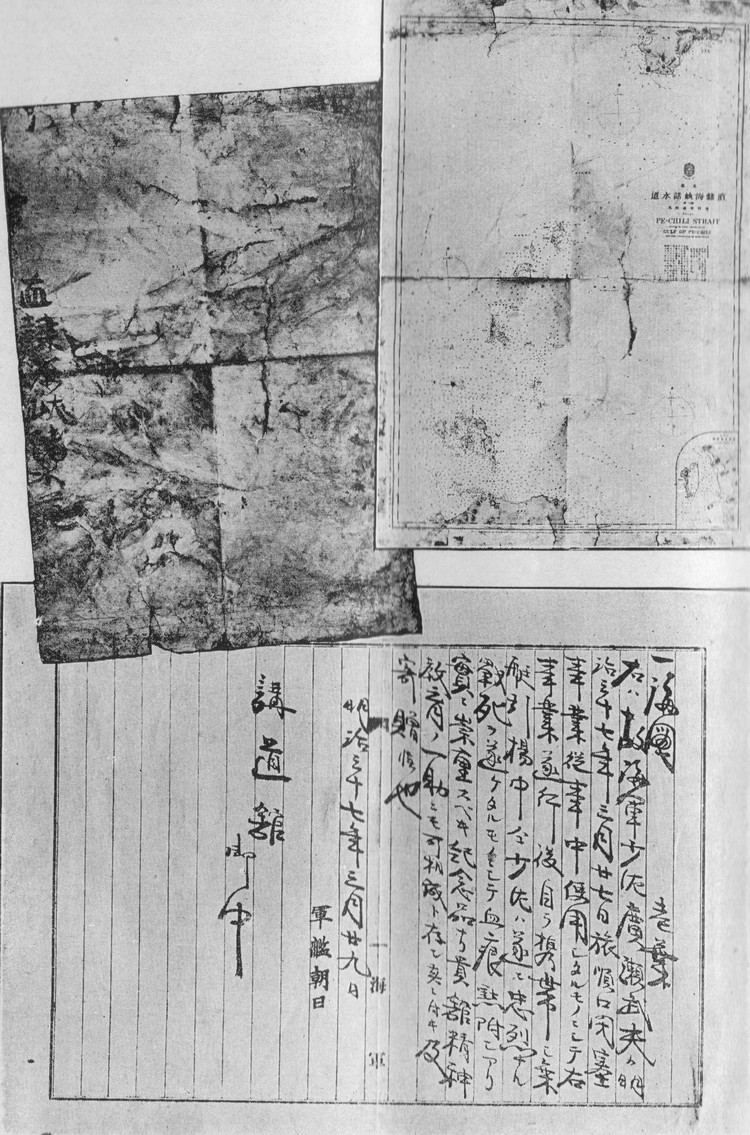 直隷海峡
直隷海峡諸水道
PE-CHILI STRAIT
GULF OF PE-CHILI
一海圖 壱葉
右ハ故海軍少佐廣瀬武夫カ明
治三十七年三月廿七日旅順口閉塞
事業従事中使用シタルモノニシテ右
事業遂行後自ラ携帯シ乗
艇引揚中仝少佐ハ遂ニ忠烈ナル
戦死ヲ遂ケタルモノニシテ血痕點附シアリ
實ニ崇重スヘキ紀念品ニ付貴舘精神
教育ノ一助ニモ可相成ト存シ及
寄贈候也
明治三十七年三月廿九日
軍艦朝日
講道舘 御中
海軍